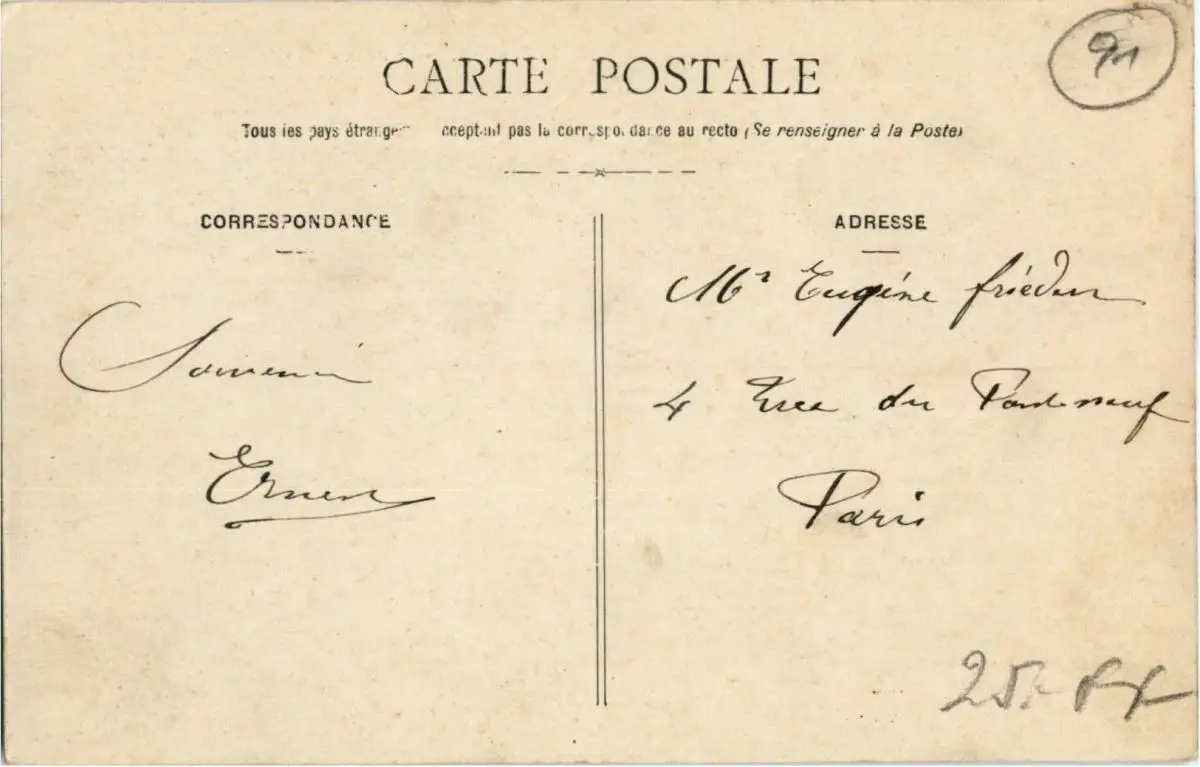 91
CARTE POSTALE
Tous les pays étrangers n'acceptant pas la correspondance au recto (Se renseigner à la Poste)
CORRESPONDANCE
ADRESSE
Souvenir
Ernest
Mr Eugène
4 du Pont-neuf
Paris
25